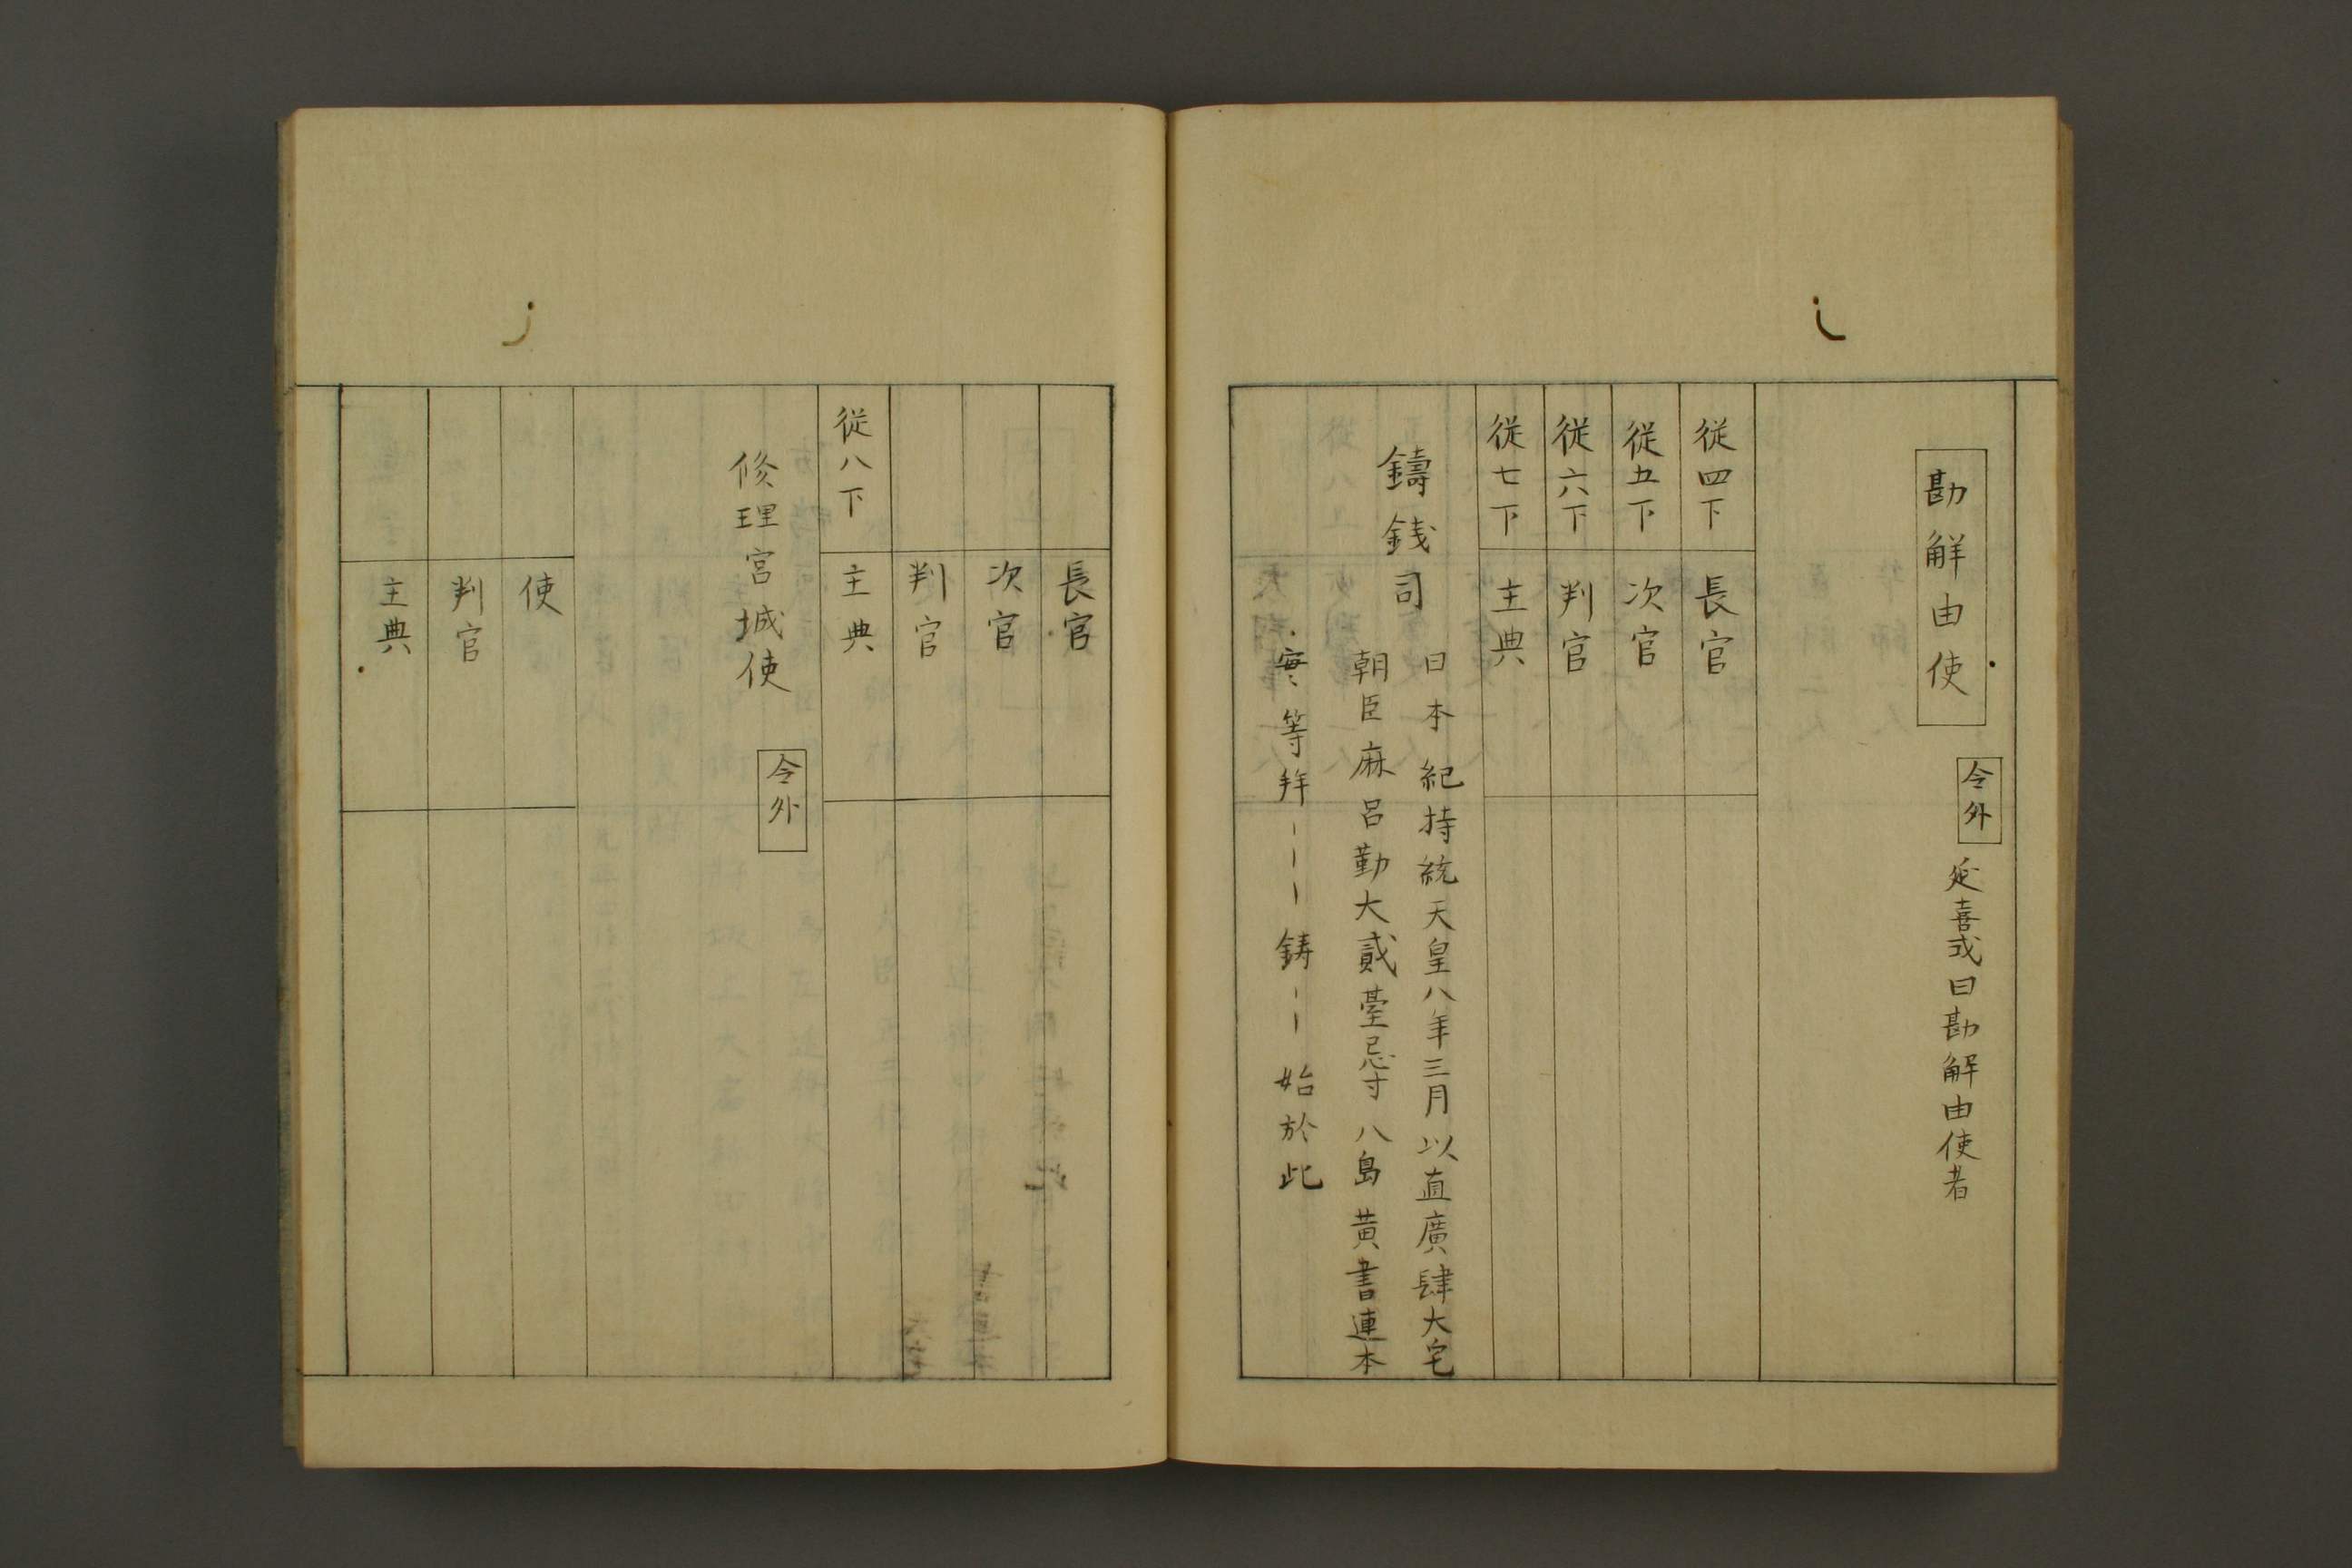 勘解由使
令外
延喜式曰勘解由使者
従四下 長官
従五下 次官
従六下 判官
従七下 主典
鑄銭司
日本紀持統天皇八年三月以直廣肆大宅
朝臣麻呂勤大貳臺忌寸八島黄書連本
實等拜〡〡〡鋳〡〡始於此
長官
次官
判官
従八下 主典
修理宮城使
令外
使
判官
主典